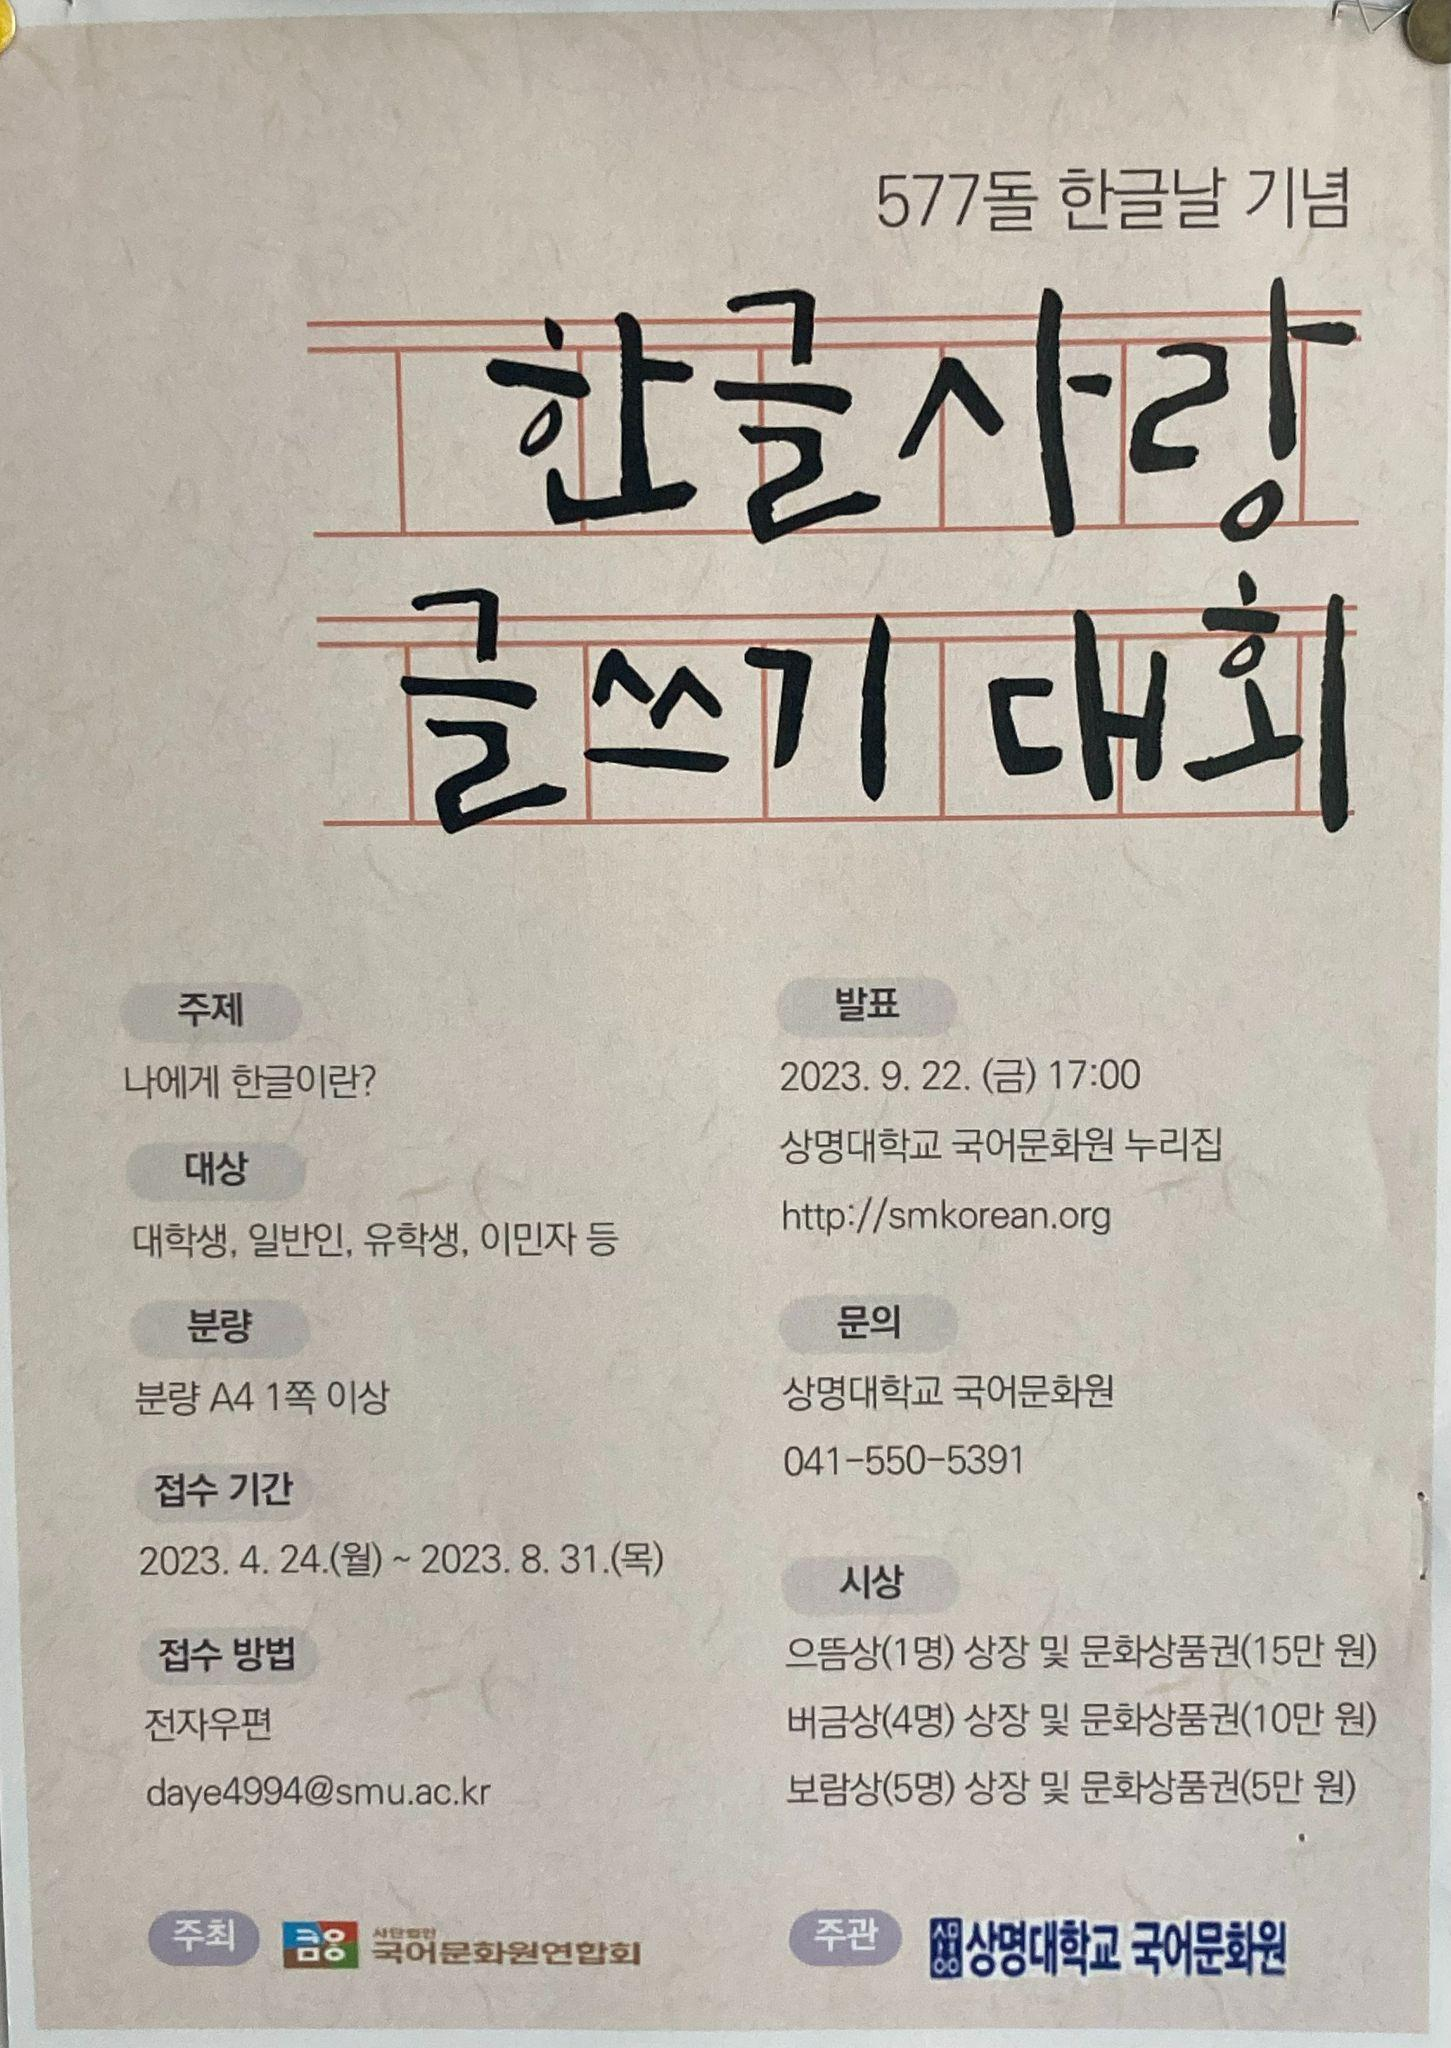 577돌 한글날 기념
한글사랑
글쓰기 대회
주제
나에게 한글이란?
대상
대학생, 일반인, 유학생, 이민자 등
분량
분량 A4 1쪽 이상
접수 기간
2023. 4. 24.(월) ~ 2023. 8. 31.(목)
접수 방법
전자우편
daye4994@smu.ac.kr
발표
2023. 9. 22. (금) 17:00
상명대학교 국어문화원 누리집
http://smkorean.org
문의
상명대학교 국어문화원
041-550-5391
시상
으뜸상(1명) 상장 및 문화상품권(15만 원)
버금상(4명) 상장 및 문화상품권(10만 원)
보람상(5명) 상장 및 문화상품권(5만 원)
주최
사단법인
국어문화원연합회
주관
상명대학교 국어문화원